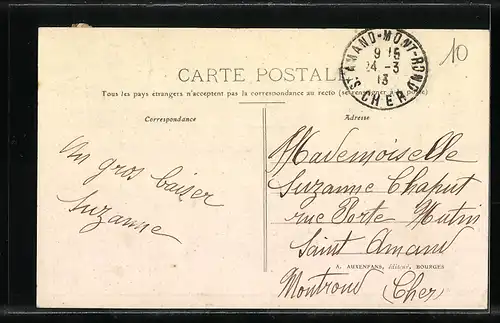 10
ST AMAND-MONT-ROND
9 15
24 -3
13
CHER
CARTE POSTALE
Tous les pays étrangers n'acceptent pas la correspondance au recto (se renseigner à la poste)
Correspondance
Adresse
un gros baiser
Suzanne
Mademoiselle
Suzanne Chaput
rue Porte Mutin
Saint Amand
A. AUXENFANS, éditeur, BOURGES
Montrond (Cher)